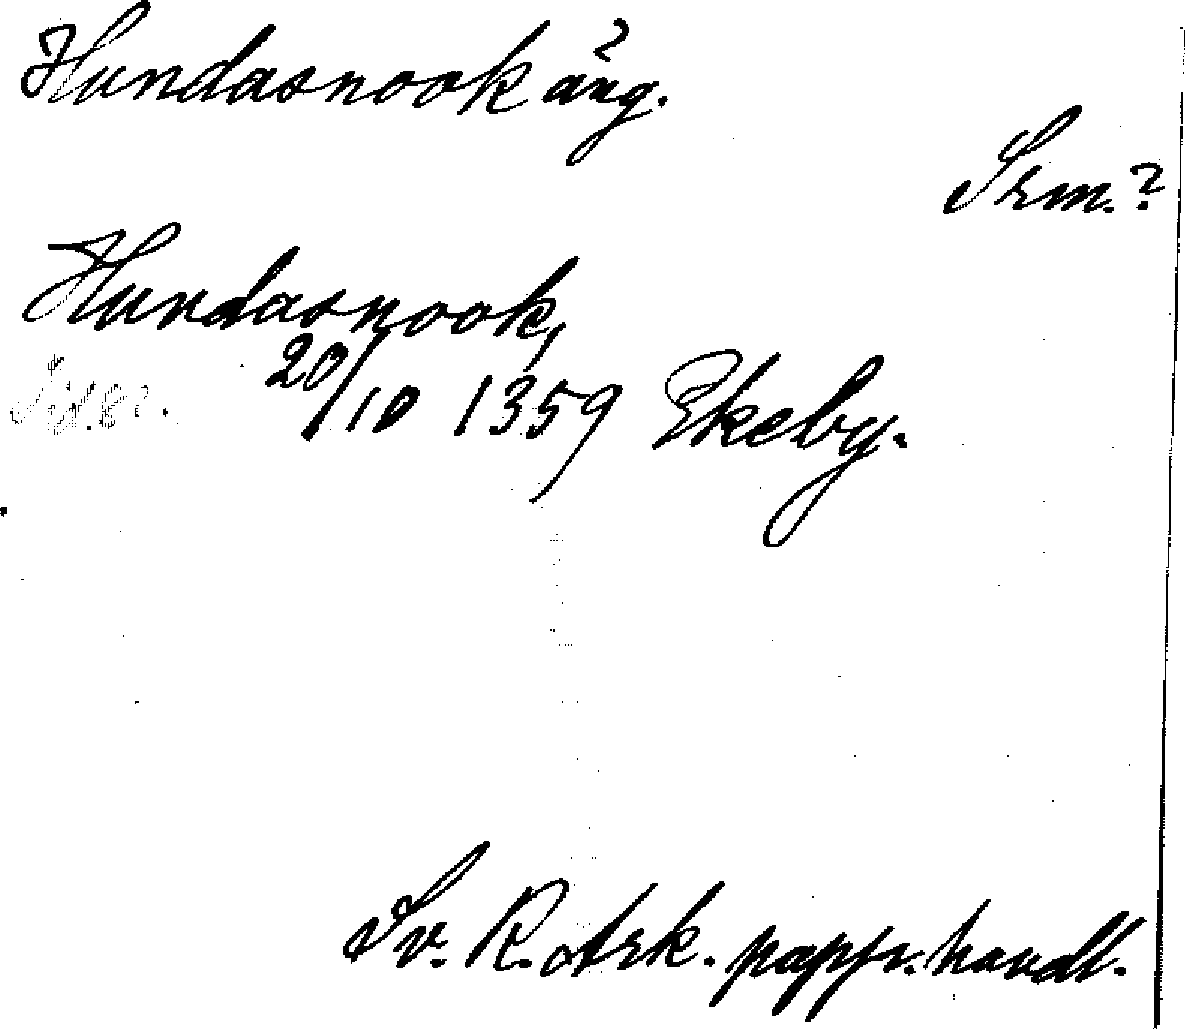 Hundasnook äng. ?
Srm.?
Hundasnook,
20/10 1359 Ekeby.
Sv. R. Ark. pappr. handl.